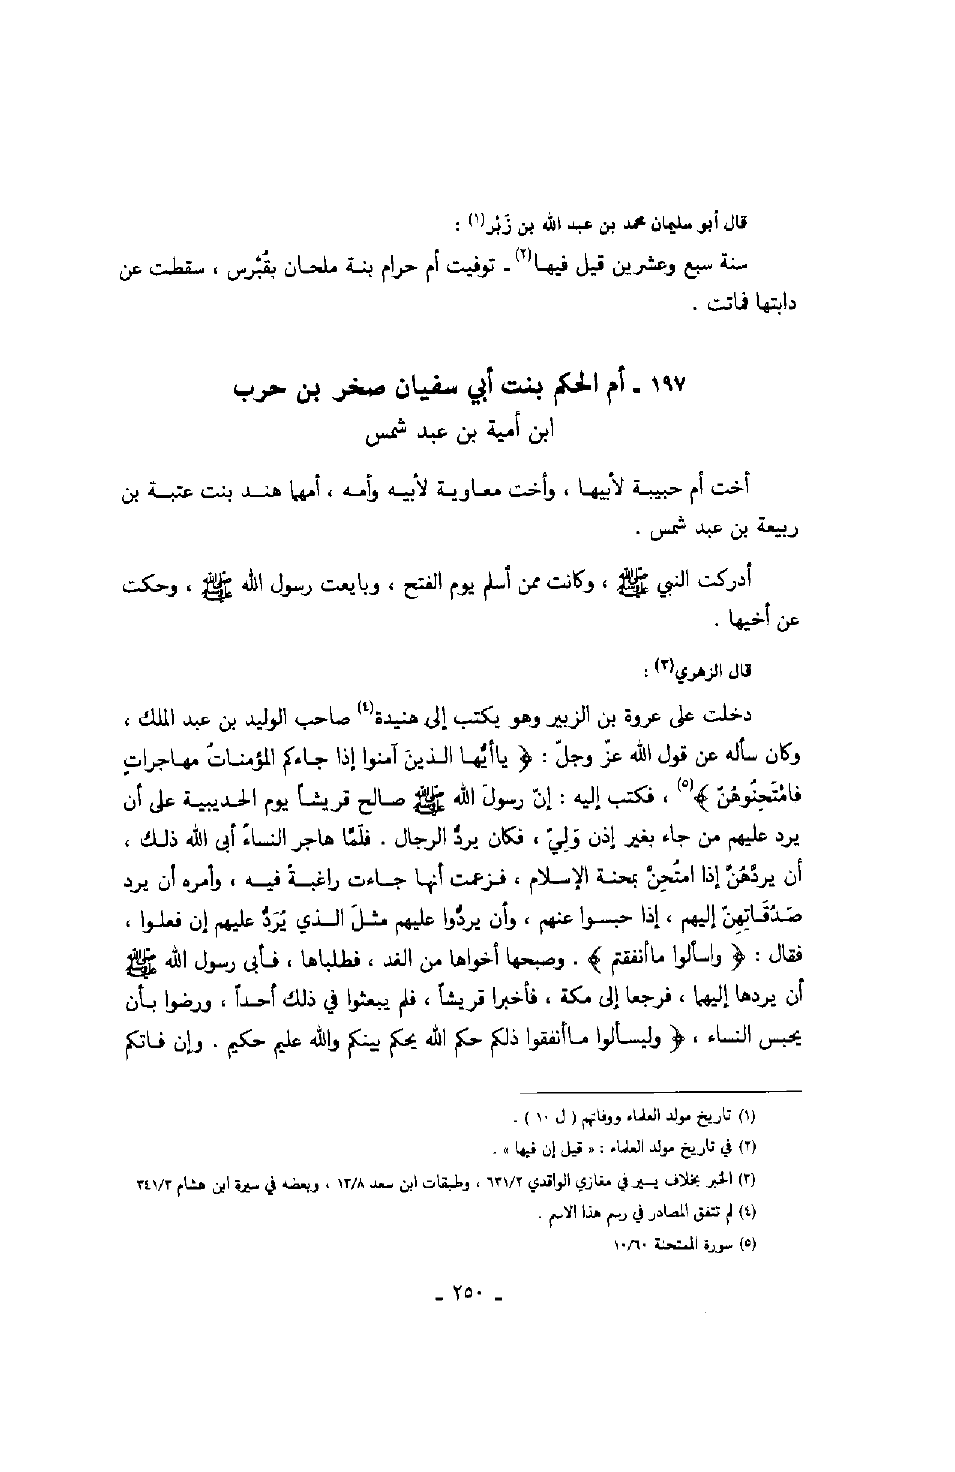 قال أبو سليمان محمد بن عبد الله بن زَبْر(١) :
سنة سبع وعشرين قيل فيها(٢) ـ توفيت أم حرام بنة ملحان بقُبْرس ، سقطت عن
دابتها فاتت .
١٩٧ ـ أم الحكم بنت أبي سفيان صخر بن حرب
ابن أمية بن عبد شمس
أخت أم حبيبة لأبيها ، وأخت معاوية لأبيه وأمه ، أمها هند بنت عتبة بن
ربيعة بن عبد شمس .
أدركت النبي ﷺ ، وكانت ممن أسلم يوم الفتح ، وبايعت رسول الله ﷺ ، وحكت
عن أخيها .
قال الزهري(٣) :
دخلت على عروة بن الزبير وهو يكتب إلى هنيدة(٤) صاحب الوليد بن عبد الملك ،
وكان سأله عن قول الله عزّ وجلّ : ﴿ ياأيُّها الذينَ آمنوا إذا جاءكم المؤمناتُ مهاجراتٍ
فامْتَحِنُوهُنّ ﴾(٥) ، فكتب إليه : إنّ رسولَ الله ﷺ صالح قريشاً يوم الحديبية على أن
يرد عليهم من جاء بغير إذن وَلِيّ ، فكان يردُّ الرجال . فلَمّا هاجر النساءُ أبى الله ذلك ،
أن يردَّهُنَّ إذا امتُحِنّ بمحنة الإسلام ، فزعمت أنها جاءت راغبةً فيه ، وأمره أن يرد
صَدُقَاتِهِنّ إليهم ، إذا حبسوا عنهم ، وأن يردُّوا عليهم مثلَ الذي يُرَدُّ عليهم إن فعلوا ،
فقال : ﴿ واسألوا ماأنفقتم ﴾ . وصبحها أخواها من الغد ، فطلباها ، فأبى رسول الله ﷺ
أن يردها إليهما ، فرجعا إلى مكة ، فأخبرا قريشاً ، فلم يبعثوا في ذلك أحداً ، ورضوا بأن
يحبس النساء ، ﴿ وليسألوا ماأنفقوا ذلكم حكم الله يحكم بينكم والله عليم حكيم . وإن فاتكم
(١) تاريخ مولد العلماء ووفاتهم ( ل ١٠ ) .
(٢) في تاريخ مولد العلماء : « قيل إن فيها » .
(٣) الخبر بخلاف يسير في مغازي الواقدي ٦٣١/٢ ، وطبقات ابن سعد ١٣/٨ ، وبعضه في سيرة ابن هشام ٣٤١/٣
(٤) لم تتفق المصادر في رسم هذا الاسم .
(٥) سورة الممتحنة ١٠/٦٠
ـ ٢٥٠ ـ